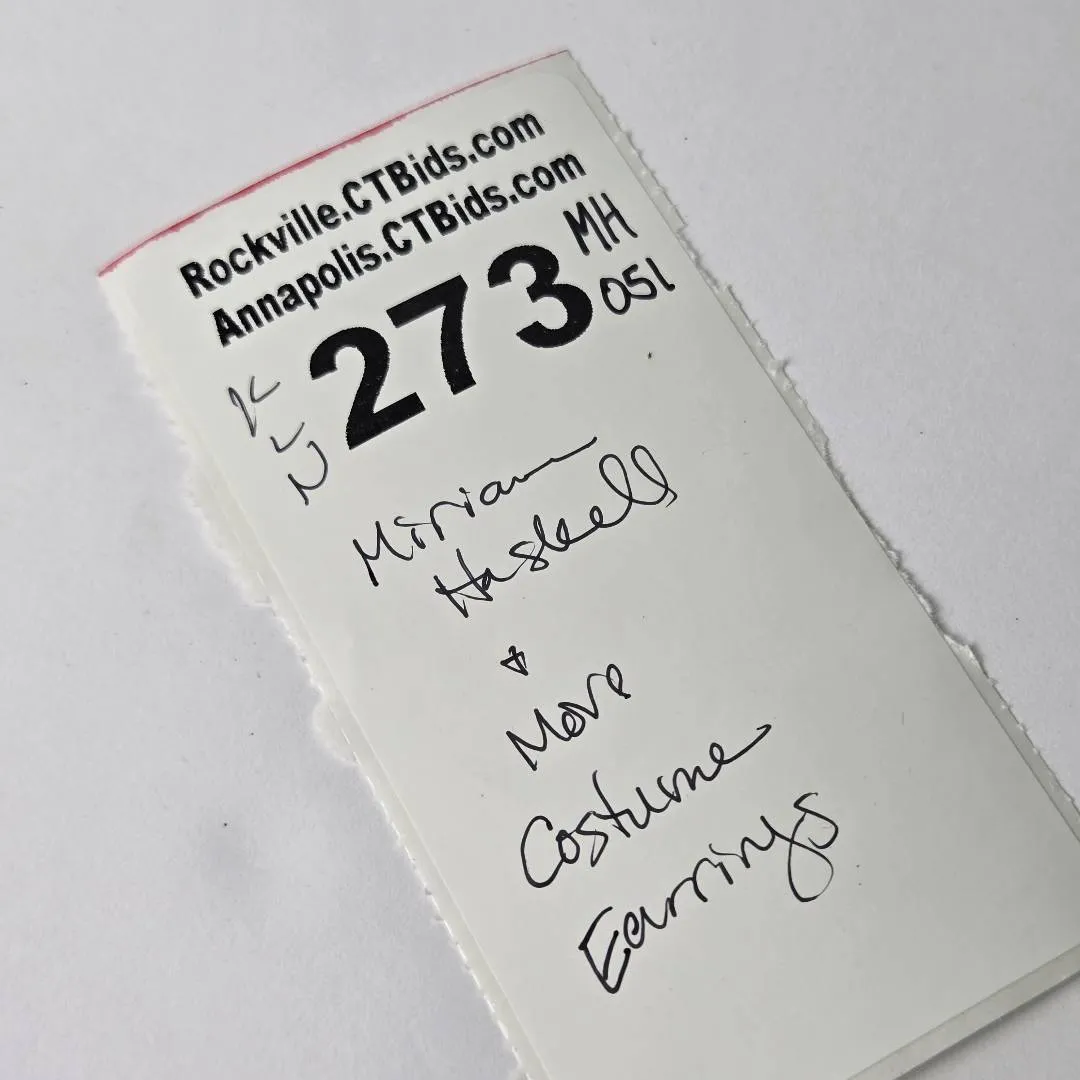 Rockville.CTBids.com
Annapolis.CTBids.com
273
MH
051
K
L
N
Miriam
Haskell
+
More
Costume
Earrings